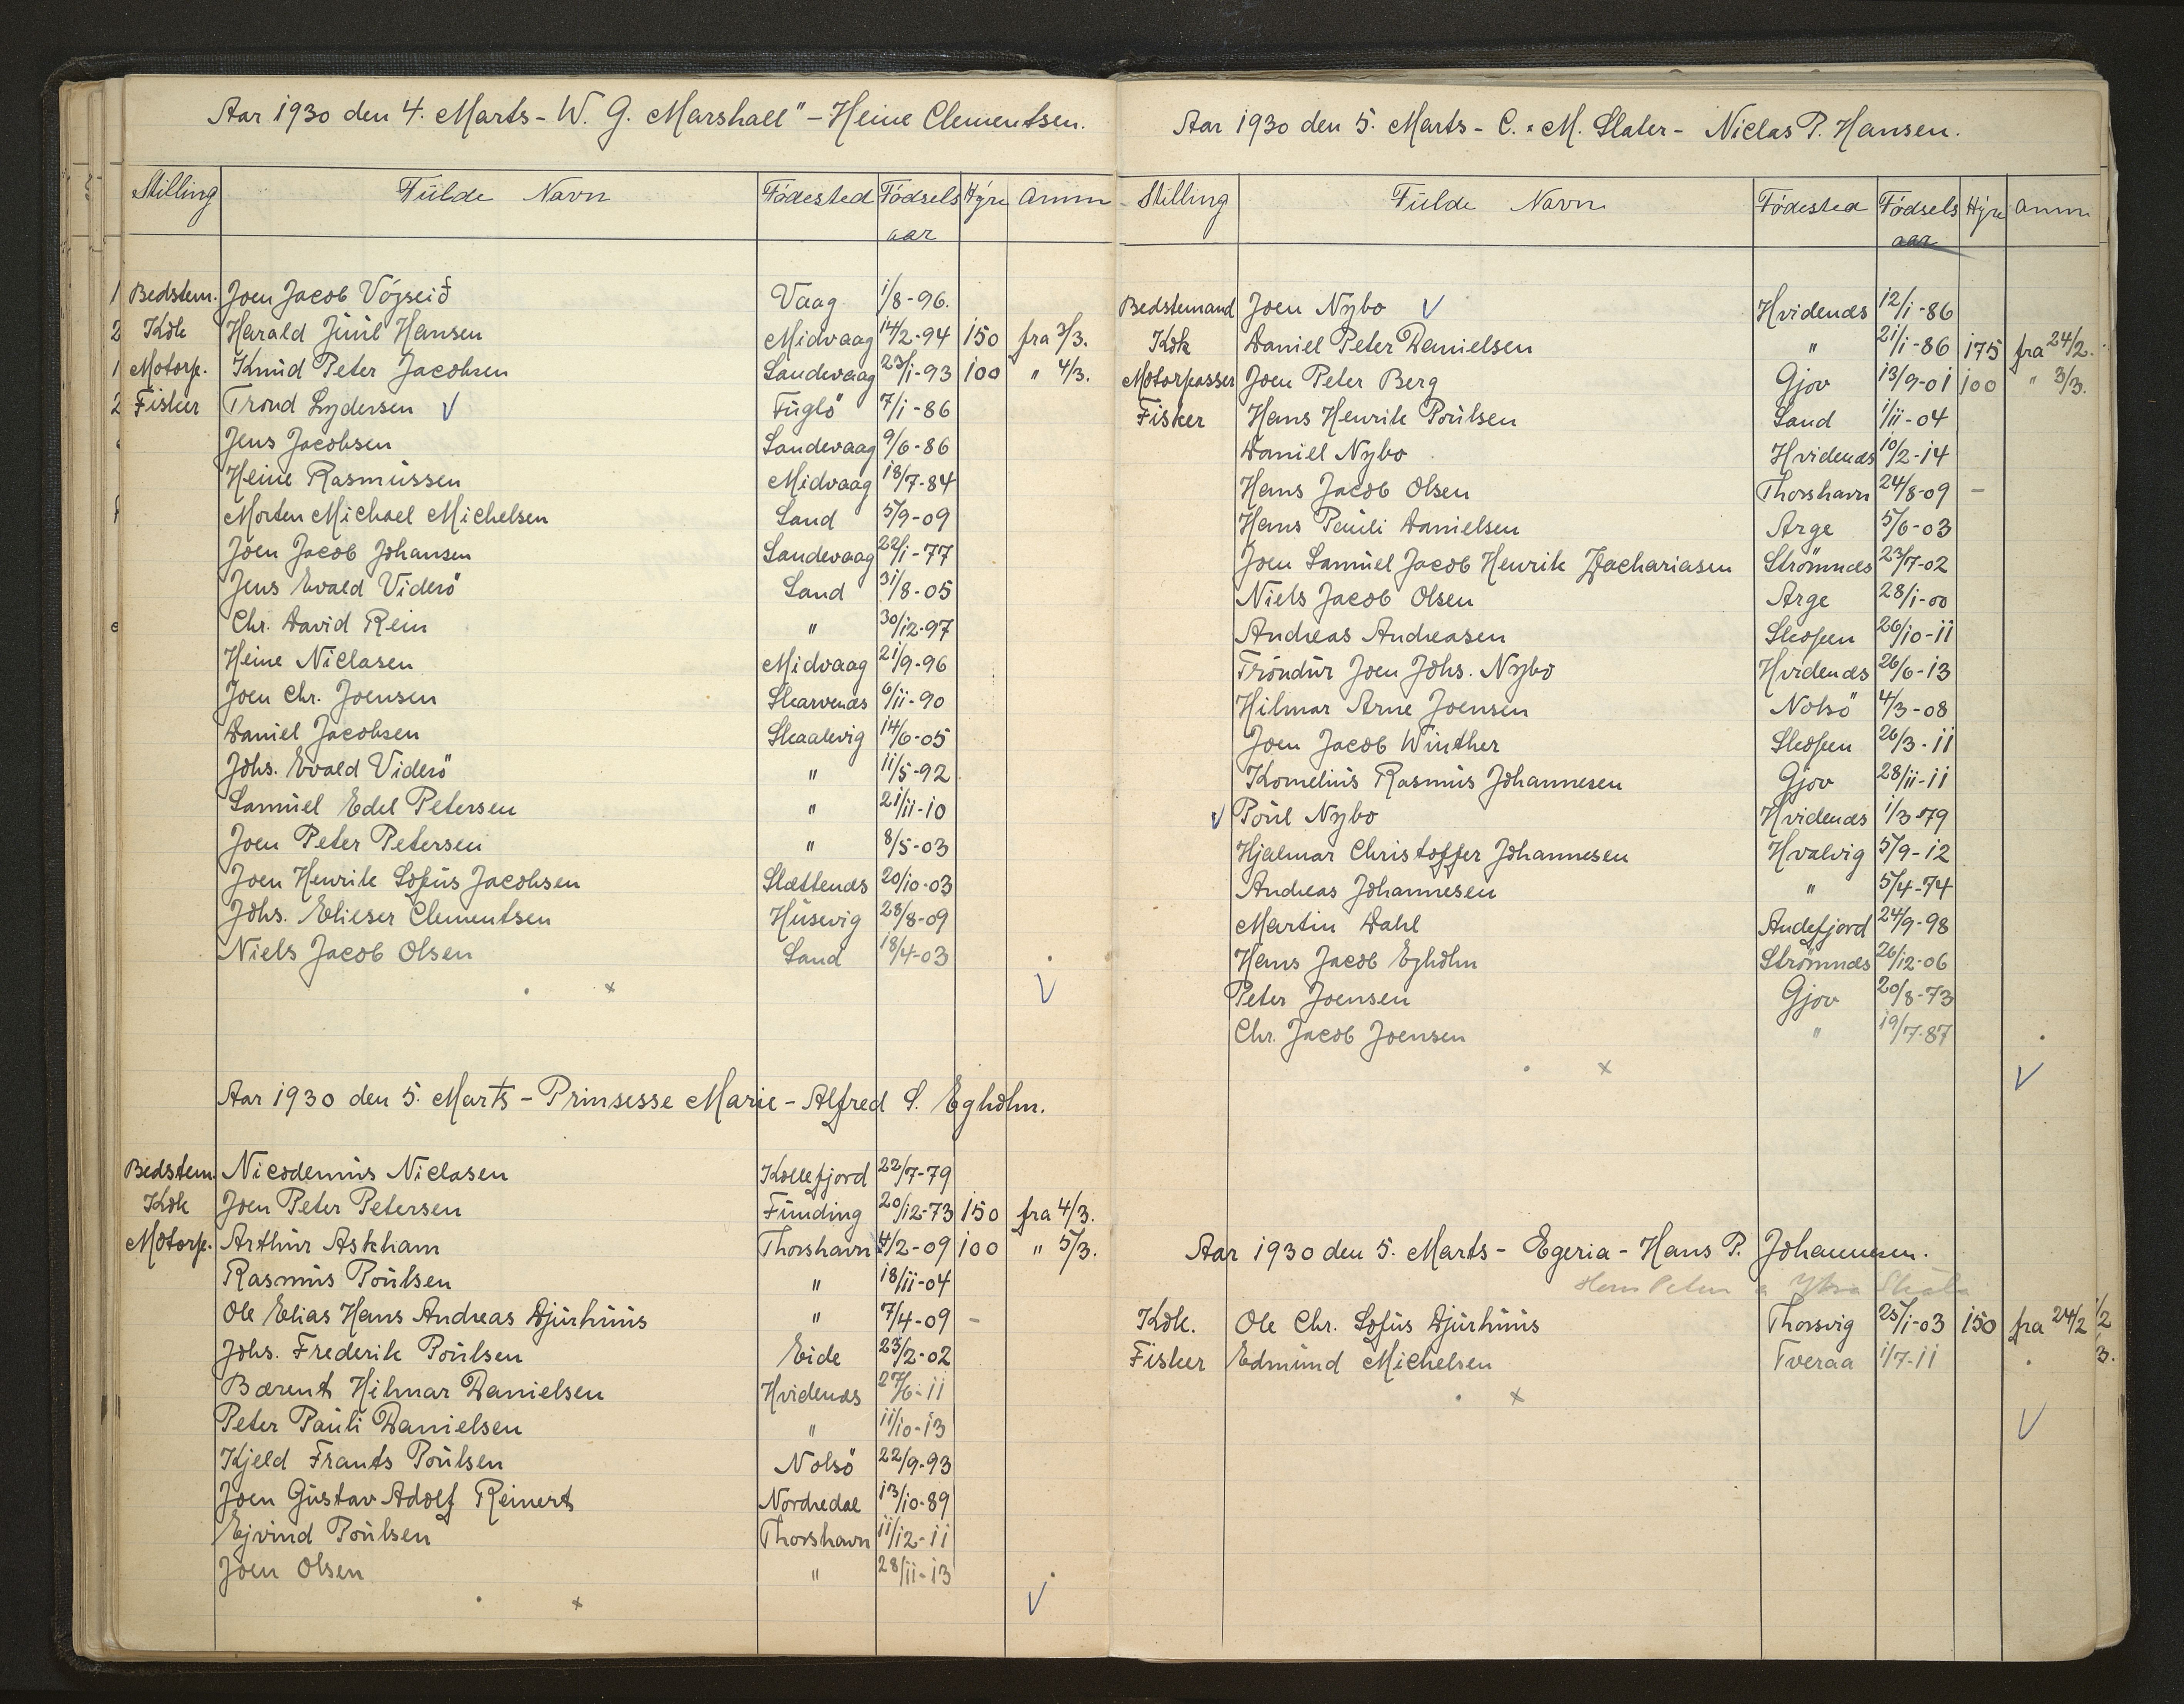 Aar 1930 den 4. Marts - W. G. Marshall" - Heine Clementsen.
Stilling Fulde Navn Fødested Fødsels Hyre Anm
aar
1 Bedstem. Joen Jacob Vágseið Vaag 1/8-96.
2 Kok Harald Juul Hansen Midvaag 14/2-94 150 fra 3/3.
1 Motorp. Knud Peter Jacobsen Sandevaag 23/1-93 100 " 4/3.
2 Fisker Trond Lydersen V Fuglö 7/1-86
Jens Jacobsen Sandevaag 9/6-86
Heine Rasmussen Midvaag 18/7-84
Morten Michael Michelsen Sand 5/9-09
Joen Jacob Johansen Sandevaag 22/1-77
Jens Evald Viderö Sand 31/8-05
Chr. David Rein " 30/12-97
Heine Niclasen Midvaag 21/9-96
Joen Chr. Joensen Skarvenæs 6/11-90
Daniel Jacobsen Skaalevig 14/6-05
Johs. Evald Viderö " 11/5-92
Samuel Edel Petersen " 21/11-10
Joen Peter Petersen " 8/5-03
Joen Henrik Sofus Jacobsen Slættenæs 20/10-03
Johs. Elieser Clementsen Husevig 28/8-09
Niels Jacob Olsen Sand 18/4-03
x V
Aar 1930 den 5. Marts - Prinsesse Marie - Alfred S. Egholm.
Bedstem. Nicodemus Niclasen Kollefjord 22/7-79
Kok Joen Peter Petersen Funding 20/12-73 150 fra 4/3.
Motorp. Arthur Askham Thorshavn 4/2-09 100 " 5/3.
Rasmus Poulsen " 18/11-04
Ole Elias Hans Andreas Djurhuus " 7/4-09 -
Johs. Frederik Poulsen Eide 23/2-02
Bærent Hilmar Danielsen Hvidenæs 27/6-11
Peter Pauli Danielsen " 11/10-13
Kjeld Frants Poulsen Nolsö 22/9-93
Joen Gustav Adolf Reinert Nordredal 13/10-89
Ejvind Poulsen Thorshavn 11/12-11
Joen Olsen " 28/11-13
x V
Aar 1930 den 5. Marts - C. & M. Slater - Niclas P. Hansen.
Stilling Fulde Navn Fødested Fødsels Hyre Anm
aar
Bedstemand Joen Nybo V Hvidenæs 12/1-86
Kok Daniel Peter Danielsen " 21/1-86 175 fra 24/2.
Motorpasser Joen Peter Berg Gjov 13/9-01 100 " 3/3.
Fisker Hans Henrik Poulsen Sand 1/11-04
Daniel Nybo Hvidenæs 10/2-14
Hans Jacob Olsen Thorshavn 24/8-09 -
Hans Pauli Danielsen Arge 5/6-03
Joen Samuel Jacob Henrik Zachariasen Strömnæs 23/7-02
Niels Jacob Olsen Arge 28/1-00
Andreas Andreasen Skopen 26/10-11
Tróndur Joen Johs. Nybo Hvidenæs 26/6-13
Hilmar Arne Joensen Nolsö 4/3-08
Joen Jacob Winther Skopen 26/3-11
Kornelius Rasmus Johannesen Gjov 28/11-11
V Poul Nybo Hvidenæs 1/3-79
Hjalmar Christoffer Johannesen Hvalvig 5/9-12
Andreas Johannesen " 5/4-74
Martin Dahl Andefjord 24/9-98
Hans Jacob Egholm Strömnæs 26/12-06
Peter Joensen Gjov 20/8-73
Chr. Jacob Joensen " 19/7-87
x V
Aar 1930 den 5. Marts - Egeria - Hans P. Johannesen.
Hans Petur á Ytra Skála
Kok. Ole Chr. Sofus Djurhuus Thorsvig 25/1-03 150 fra 24/2
Fisker Edmund Michelsen Tveraa 1/7-11
x V